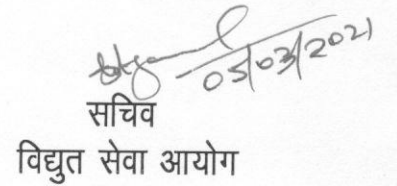 05/03/2021
सचिव
विद्युत सेवा आयोग